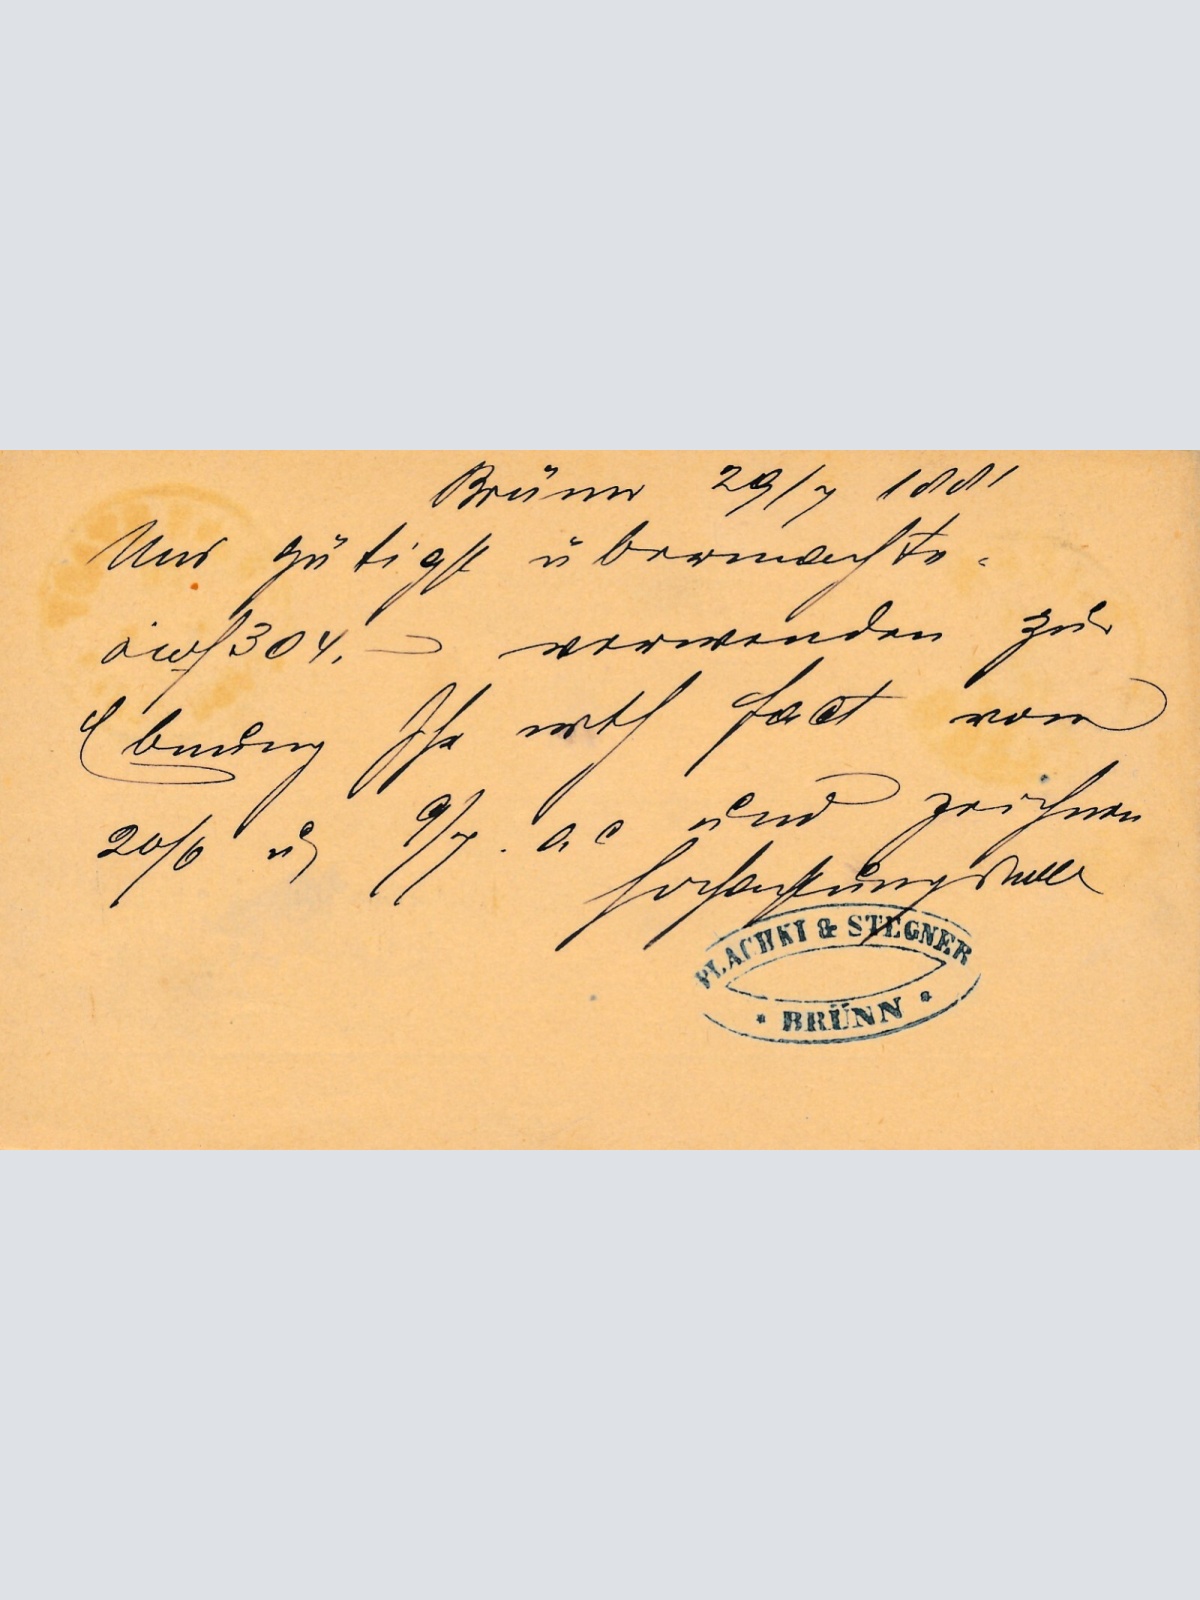 Brünn 29/7 1881
Uns gütigst übermachte
öwf 304. — verwenden zur
Ebnung Ihr wth fact vom
20/6 u 9/7. a.c und zeichnen
hochachtungsvoll
PLACHKI & STEGNER
* BRÜNN *